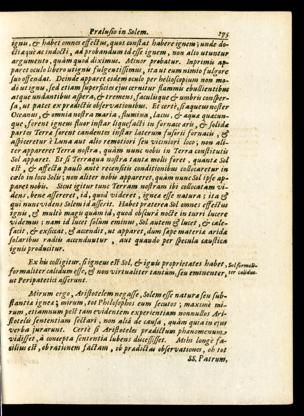 Prælusio in Solem. 295
ignis, & habet omnes effectus, quos constat habere ignem; unde do-
cti æquè ac indocti, ad probandum id esse ignem, non alio utuntur
argumento, quàm quod diximus. Minor probatur. Inprimis ap-
paret oculo libero uti ignis fulgentissimus, ita ut eum nimio fulgore
suo offendat. Deinde apparet eidem oculo per helioscopium non mo-
dò ut ignis, sed etiam superficies ejus cernitur flammis ebullientibus
atque undantibus aspera, & tremens, faculisque & umbris consper-
sa, ut patet ex prædictis observationibus. Et certè, si æquæ noster
Oceanus, & omnia nostra maria, flumina, lacus, & aqua quæcun-
que, forent igneus fluor instar liquefacti in fornace æris, & solidæ
partes Terræ forent candentes instar laterum fusorii fornacis, &
aspiceretur è Luna aut alio remotiori seu viciniori loco; non ali-
ter appareret Terra nostra, quàm nunc nobis in Terra constitutis
Sol apparet. Et si Terraqua nostra tanta molis foret, quanta Sol
est, & affecta paulò antè recensitis conditionibus collocaretur in
cælo in loco Solis; non aliter nobis appareret, quàm nunc Sol ipse ap-
paret nobis. Sicut igitur tunc Terram nostram ibi collocatam vi-
dens, bene assereret, id, quod videret, igneæ esse natura; ita &
qui nunc videns Solem id asserit. Habet præterea Sol omnes effectus
ignis, & multò magis quàm id, quod obscurâ nocte in turri lucere
videmus: nam id lucet solùm eminus, Sol autem & lucet, & cale-
facit, & exsiccat, & accendit, ut apparet, dum sæpe materia arida
solaribus radiis accenduntur, aut quando per specula caustica
ignis producitur.
Ex his colligitur, si igneus est Sol, & ignis proprietates habet,
formaliter calidum esse, & non virtualiter tantùm, seu eminenter,
ut Peripatetici asserunt.
Sol formali-
ter calidus.
Mirum ergo, Aristotelem negasse, Solem esse natura seu sub-
stantia ignea; mirum, tot Philosophos eum secutos; maximè mi-
rum, etiamnum post tam evidentem experientiam nonnullos Ari-
stotelis sententiam sectari, non alia de causa, quàm quia in ejus
verba jurarunt. Certè si Aristoteles prædictum phænomenum
vidisset, à concepta sententia lubens discessisset. Mihi longè fa-
cilius est, ob rationem factam, ob prædictas observationes, ob tot
SS. Patrum,